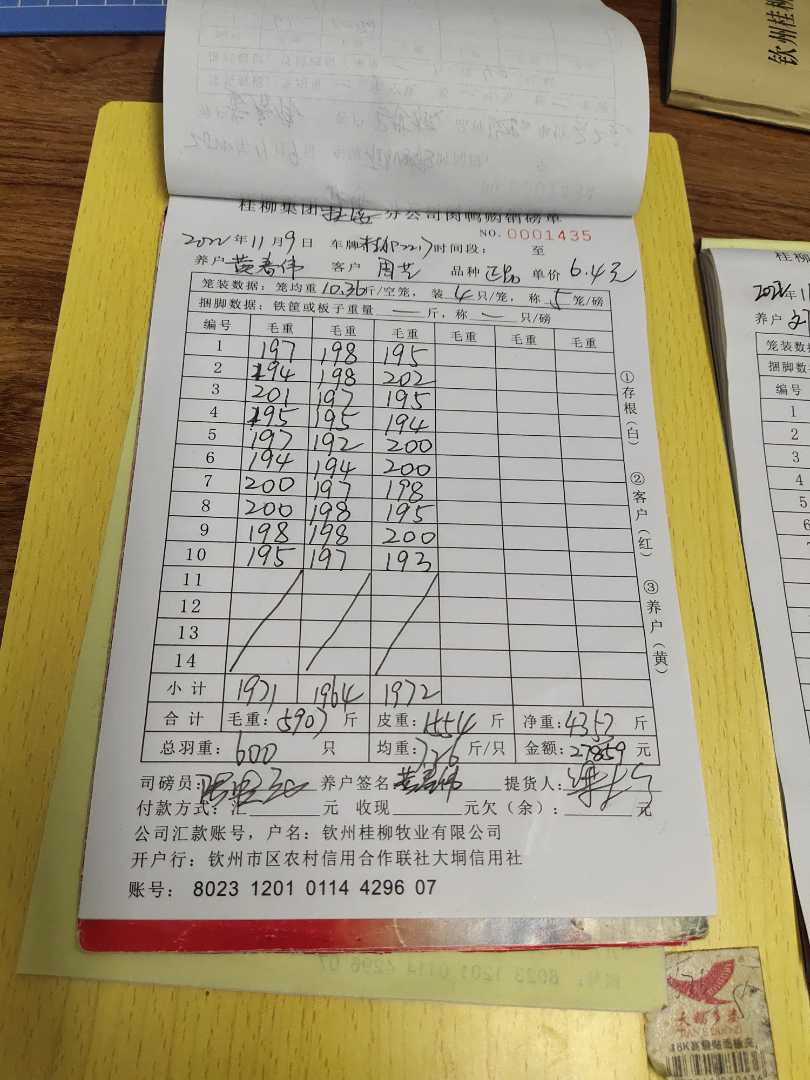 钦州桂柳
桂柳集团 分公司肉鸭购销磅单
NO. 0001435
2022年11月9日 车牌 时间段： 至
养户 黄春伟 客户 周芝 品种 单价 6.4元
笼装数据：笼均重10.36斤/空笼，装4只/笼，称5笼/磅
捆脚数据：铁筐或板子重量 — 斤，称 — 只/磅
编号 毛重 毛重 毛重 毛重 毛重 毛重
1 197 198 195
2 194 198 202
3 201 197 195
4 195 195 194
5 197 192 200
6 194 194 200
7 200 197 198
8 200 198 195
9 198 198 200
10 195 197 193
11
12
13
14
小计 1971 1964 1972
合计 毛重：5907斤 皮重：1554斤 净重：4353斤
总羽重：600只 均重：7.26斤/只 金额：27859元
司磅员： 养户签名 黄春伟 提货人：
付款方式：汇 元 收现 元欠（余）： 元
公司汇款账号，户名：钦州桂柳牧业有限公司
开户行：钦州市区农村信用合作联社大垌信用社
账号： 8023 1201 0114 4296 07
①存根（白）
②客户（红）
③养户（黄）
桂柳
养户
笼装数据
捆脚数据
编号
1
2
3
4
5
6